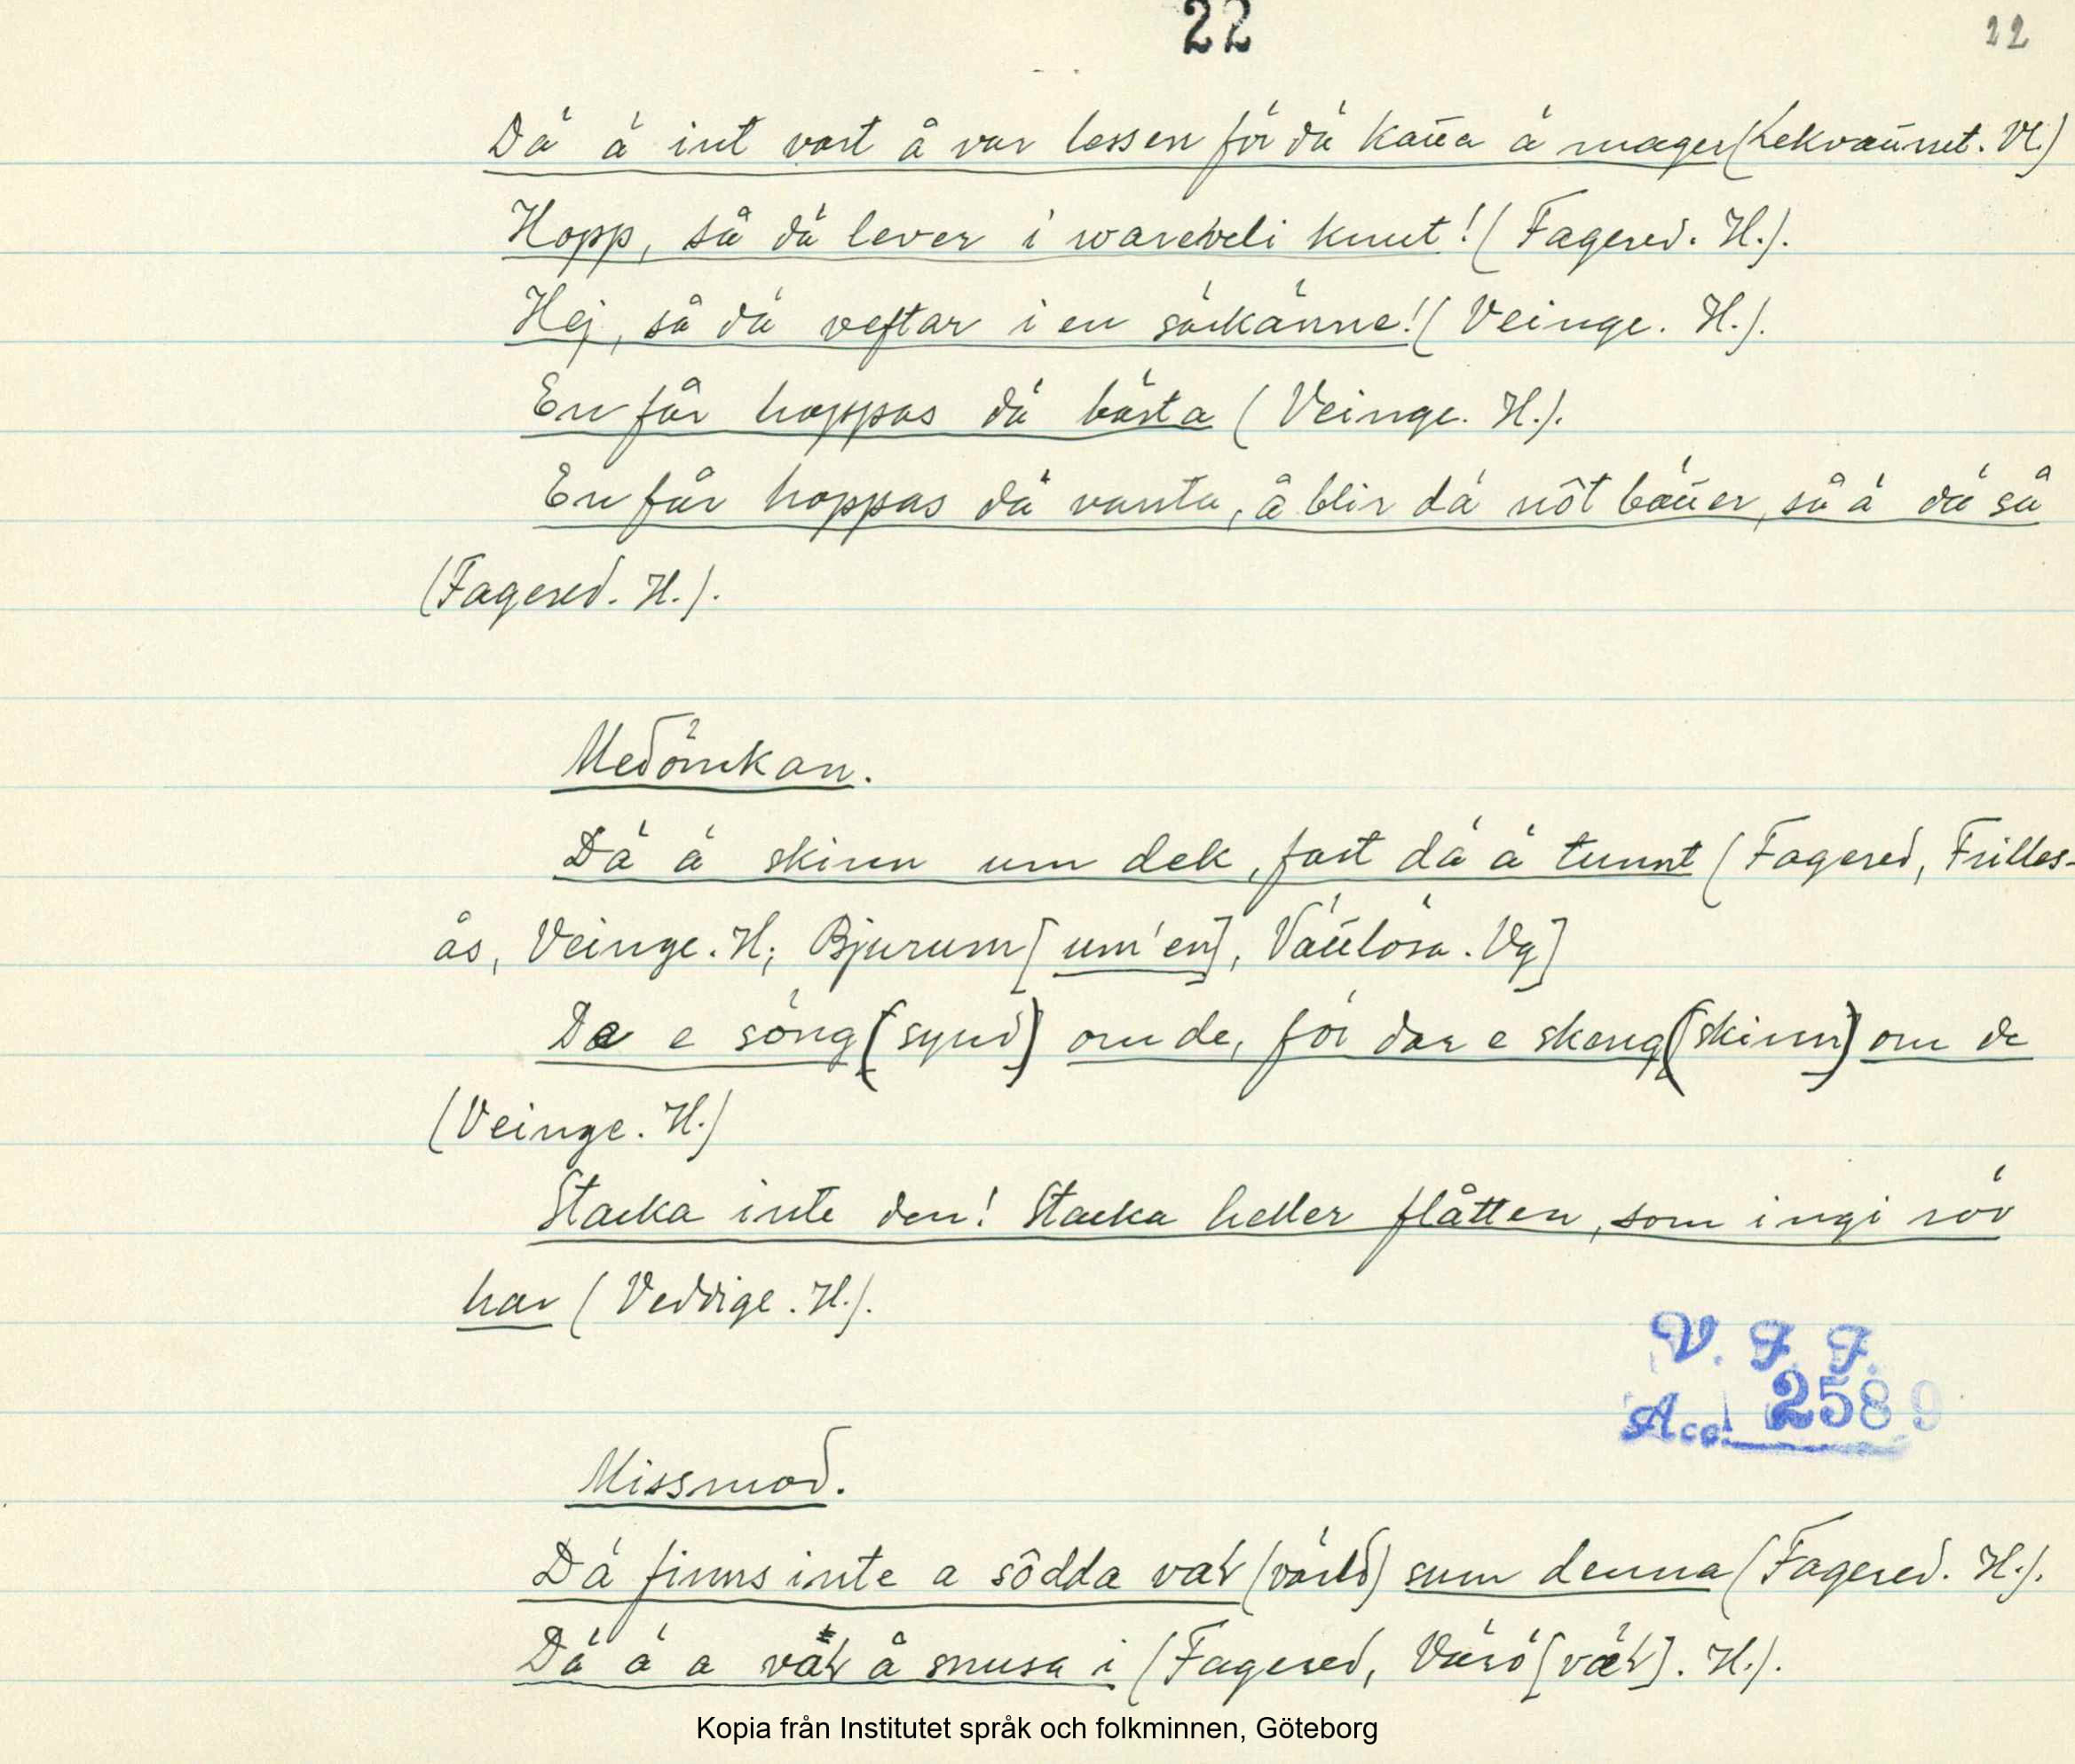 22
22
Dä ä int vart å var lessen för dä kaūa ä mager (Lekvaūnet. Vl.)
Hopp, så dä lever i warevveli knut! (Fagered. H.).
Hej, så dä veftar i en särkänne! (Veinge. H.).
En får hoppas dä bästa (Veinge. H.).
En får hoppas dä vasta, å blir dä nôt bäūer, så ä dä så
(Fagered. H.).
Medömkan.
Dä ä skinn um dek, fast dä ä tunnt (Fagered, Frilles-
ås, Veinge. H; Bjurum [um'en], Väūlösa. Vg]
De e söng (synd) om de, för dar e skeng (skinn) om de
(Veinge. H.)
Stacka inte den! Stacka heller flåtten, som ingi röv
har (Veddige. H.).
V. F. F.
Acc. 2589
Missmod.
Dä finns inte a sôdda vaḷ (värld) sum denna (Fagered. H.).
Dä ä a väḷ å snusa i (Fagered, Värö [väḷ]. H.).
Kopia från Institutet språk och folkminnen, Göteborg